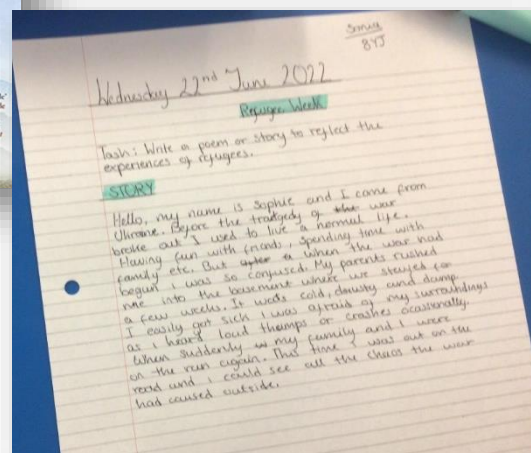 8YJ
Wednesday 22nd June 2022
Refugee Week
Task: Write a poem or story to reflect the
experiences of refugees.
STORY
Hello, my name is Sophie and I come from
Ukraine. Before the tradgedy of the war
broke out I used to live a normal life.
Having fun with friends, spending time with
family etc. But after a when the war had
begun I was so confused. My parents rushed
me into the basement where we stayed for
a few weeks. It was cold, dausty and damp.
I easily got sick I was afraid of my surroundings
as I heard loud thumps or crashes ocassionally.
When suddenly my family and I were
on the run again. This time I was out on the
road and i could see all the chaos the war
had caused outside.